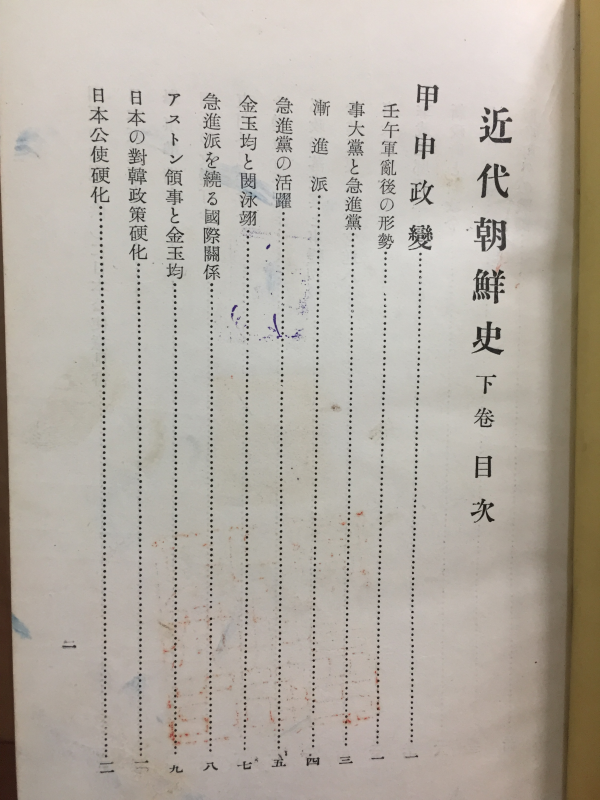 近代朝鮮史 下卷 目次
甲申政變……一
壬午軍亂後の形勢……一
事大黨と急進黨……三
漸進派……四
急進黨の活躍……五
金玉均と閔泳翊……七
急進派を繞る國際關係……八
アストン領事と金玉均……九
日本の對韓政策硬化……二
日本公使硬化……二
二